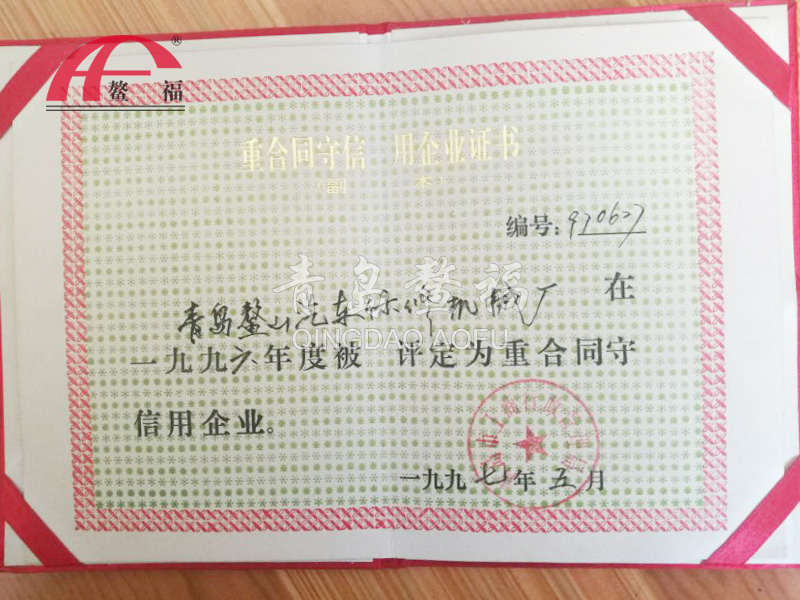 鳌福
®
重合同守信 用企业证书
（副 本）
编号：970627
青岛鳌福
青岛鳌山汽车维修机械厂 在
QINGDAO AOFU
一九九六年度被 评定为重合同守
信用企业。
一九九七年五月